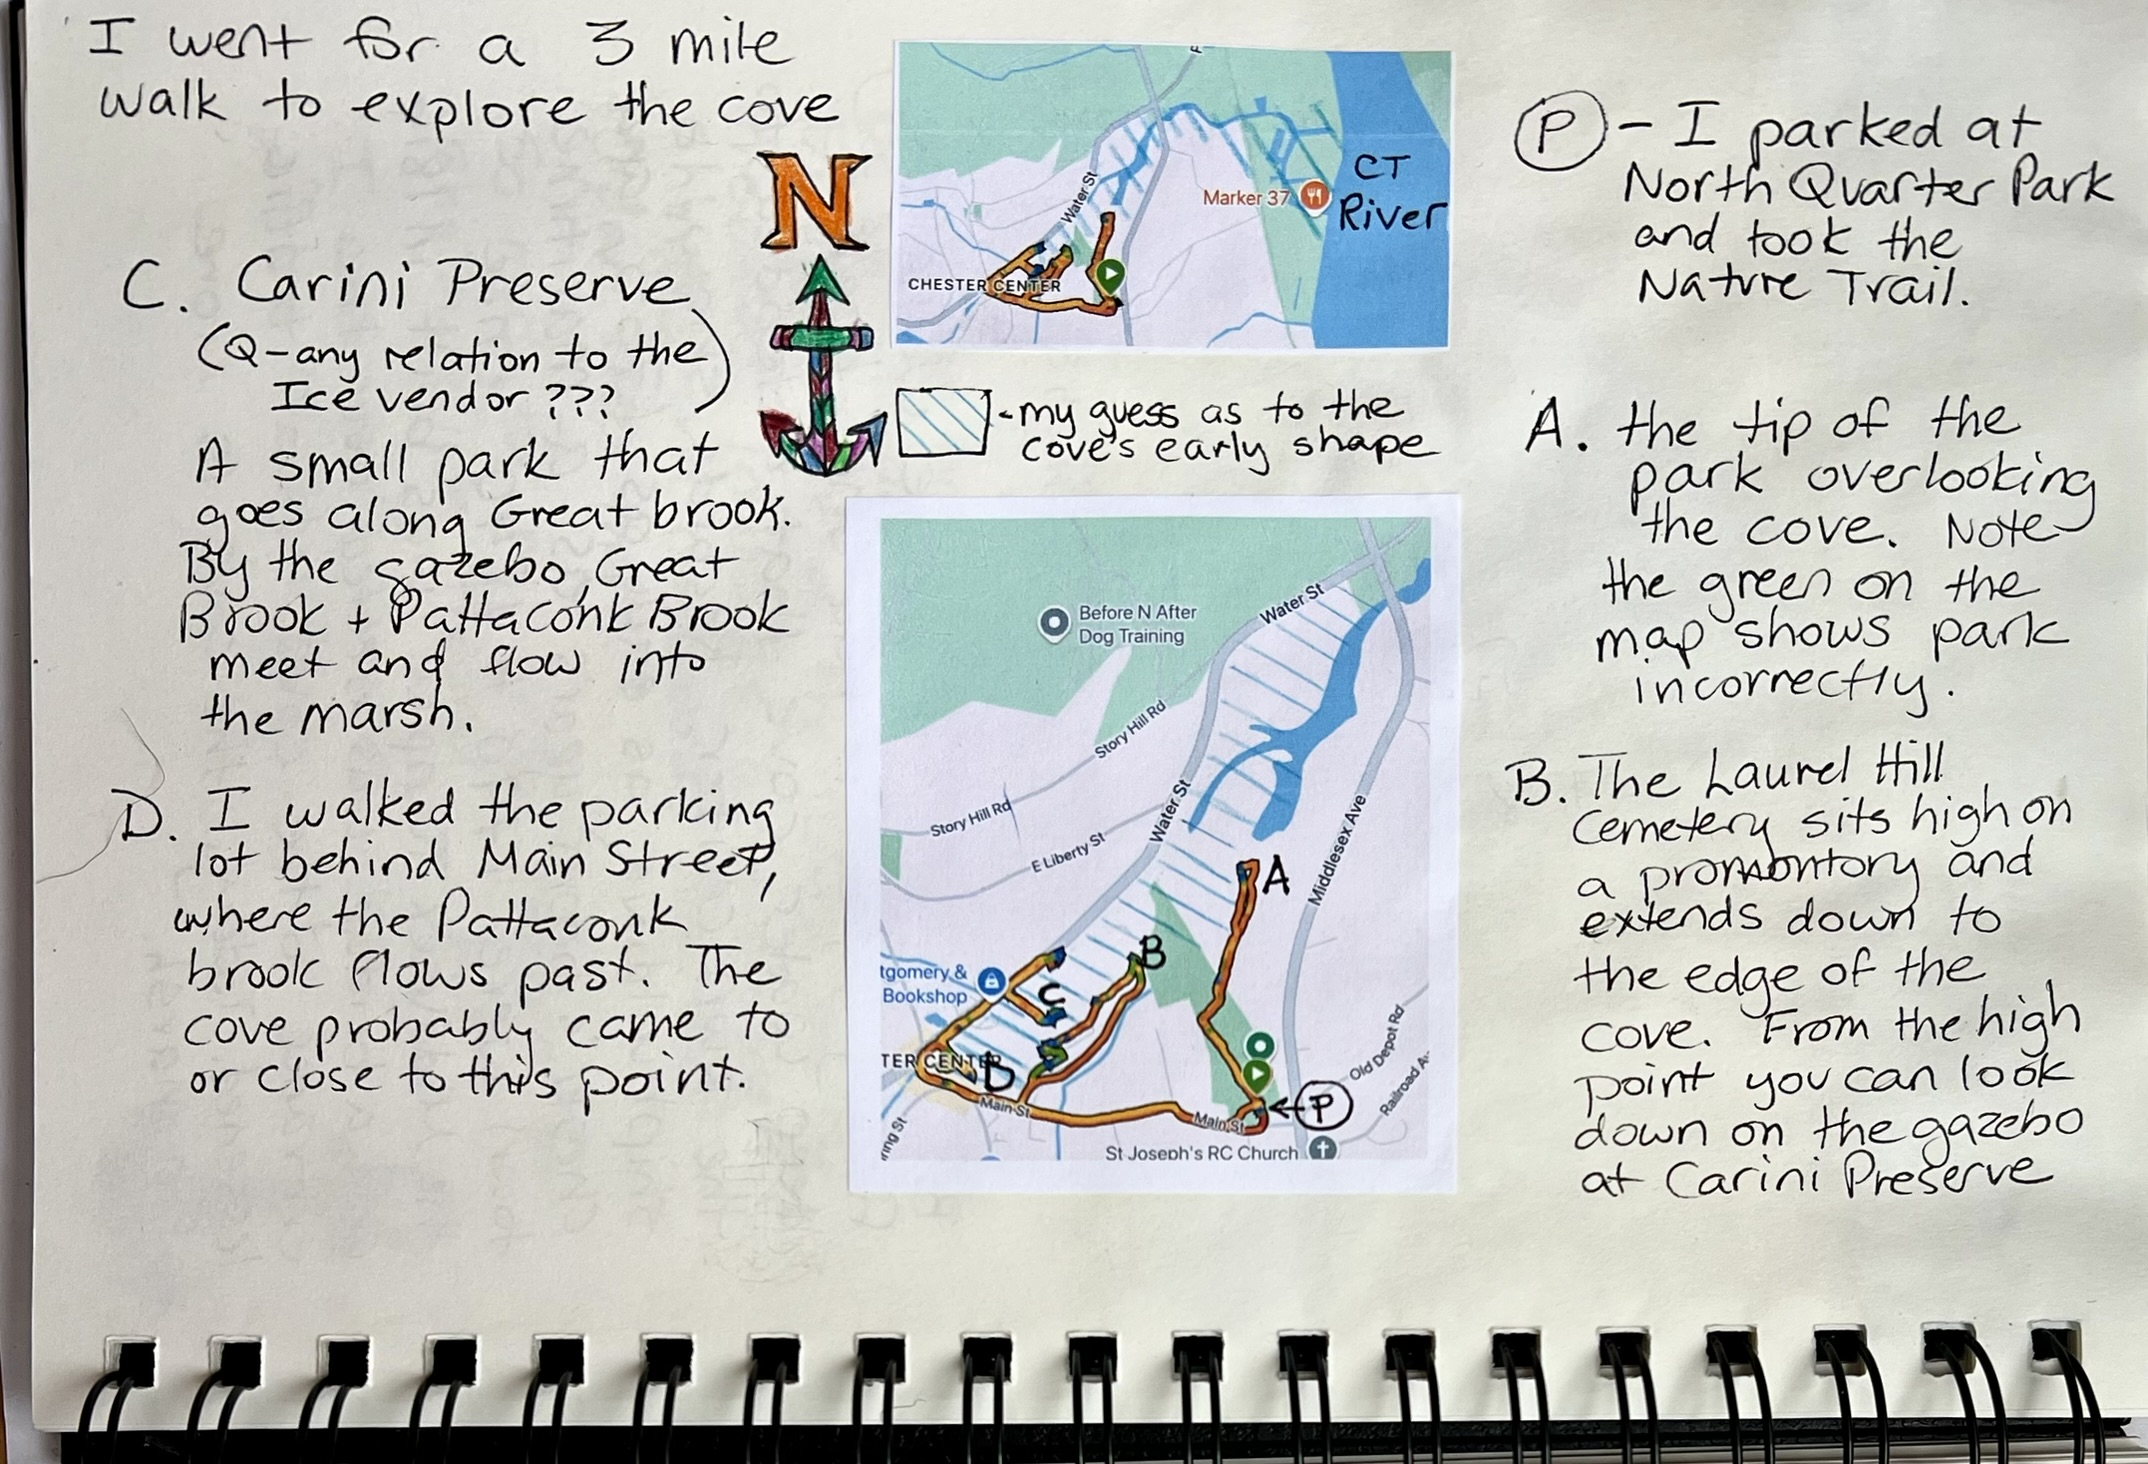 I went for a 3 mile
walk to explore the cove
N
C. Carini Preserve
(Q-any relation to the
Ice vendor ???)
A small park that
goes along Great brook.
By the gazebo, Great
Brook + Pattaconk Brook
meet and flow into
the marsh.
D. I walked the parking
lot behind Main Street,
where the Pattaconk
brook flows past. The
cove probably came to
or close to this point.
Water St
Marker 37
CT
River
CHESTER CENTER
-my guess as to the
cove's early shape
Before N After
Dog Training
Water St
Story Hill Rd
Story Hill Rd
Water St
E Liberty St
Middlesex Ave
A
B
tgomery &
Bookshop
C
TER CENTER
D
Main St
Main St
P
Old Depot Rd
Railroad A
ing St
St Joseph's RC Church
P - I parked at
North Quarter Park
and took the
Nature Trail.
A. the tip of the
park overlooking
the cove. Note
the green on the
map shows park
incorrectly.
B. The Laurel Hill
Cemetery sits high on
a promontory and
extends down to
the edge of the
cove. From the high
point you can look
down on the gazebo
at Carini Preserve